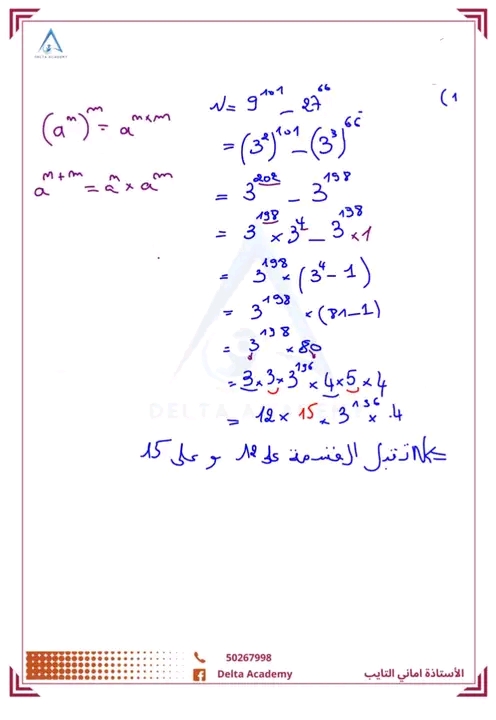 DELTA ACADEMY
1)
N = 9^101 - 27^66
(a^n)^m = a^(n×m)
= (3^2)^101 - (3^3)^66
a^(n+m) = a^n × a^m
= 3^202 - 3^198
= 3^198 × 3^4 - 3^198 × 1
= 3^198 × (3^4 - 1)
= 3^198 × (81-1)
= 3^198 × 80
= 3 × 3 × 3^196 × 4 × 5 × 4
DELTA ACADEMY
= 12 × 15 × 3^196 × 4
<= N تقبل القسمة على 12 و على 15
50267998
Delta Academy
الأستاذة اماني التايب